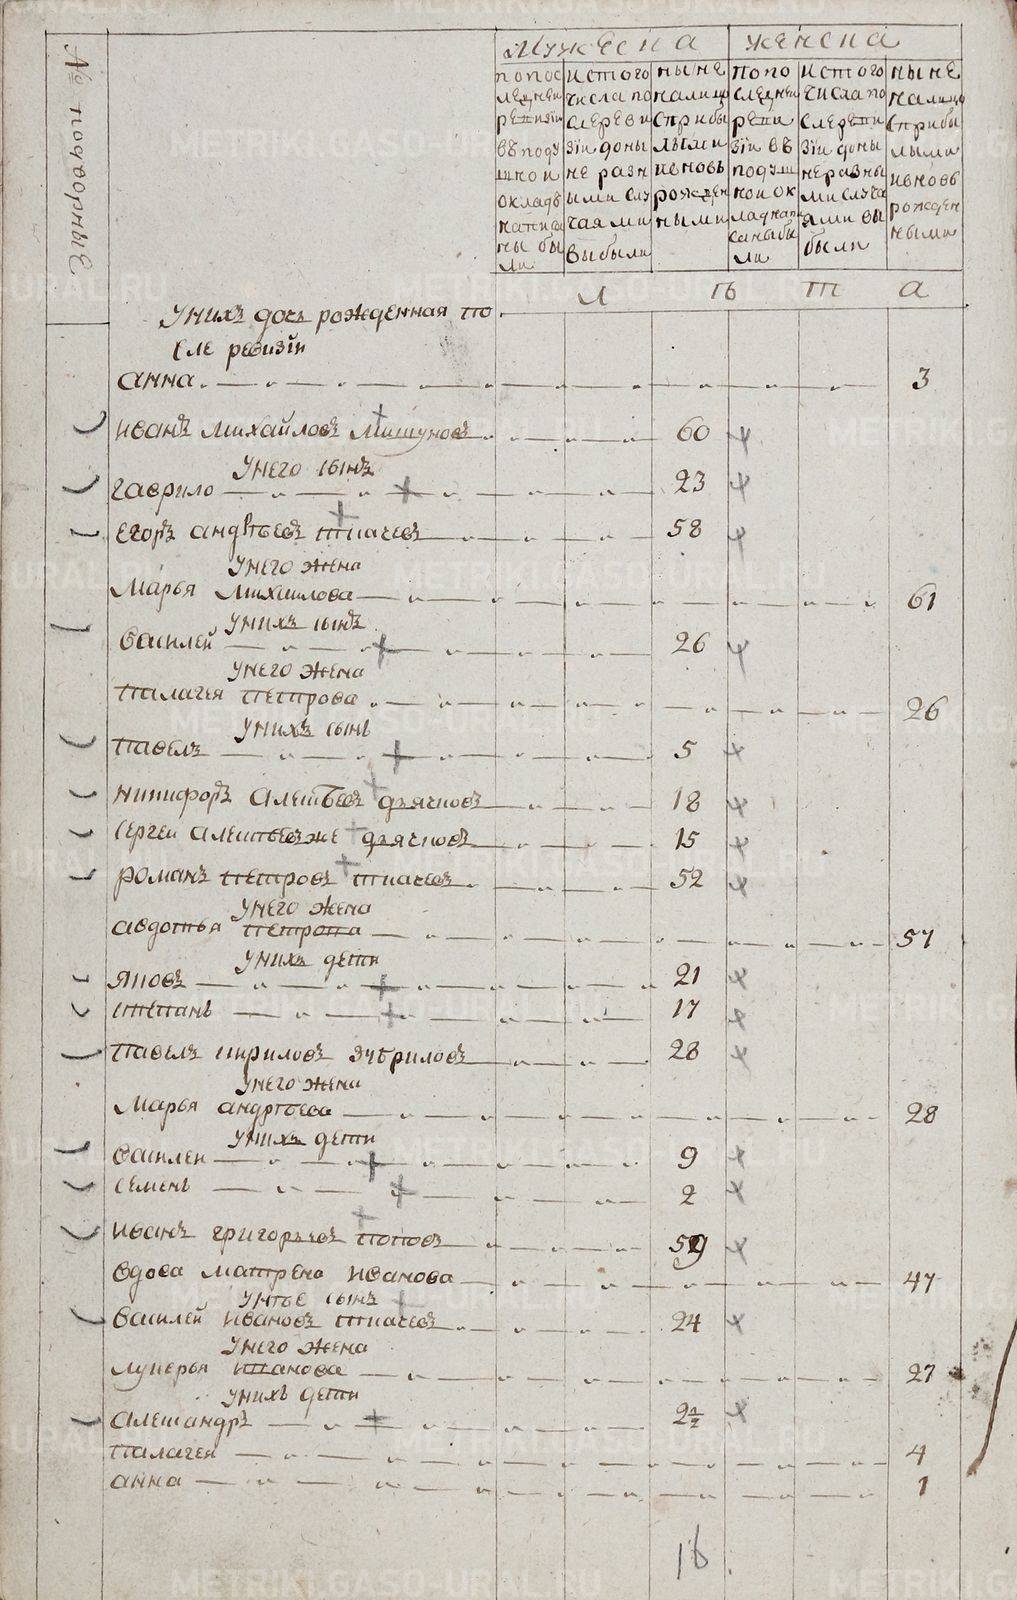 № подворные
Мужеска
женска
по пос
ледней
ревизіи
въ поду
шно и
окладъ
написа
ны бы
ли
ис того
числа по
сле реви
зіи доны
не разн
ыми слу
чаями
выбыли
ныне
налицо
с прибы
лыми
и вновь
рожден
ными
по по
следней
реви
зіи въ
подуш
ной ок
лад напи
саны бы
ли
ис того
числа по
сле реви
зіи доны
не разны
ми случа
ями вы
были
ныне
налицо
с прибы
лыми
и вновь
рожден
ными
л ѣ т а
У них дочь рожденная по
сле ревизіи
анна 3
иванъ михайловъ мишуновъ 60
У него сынъ
гаврило 23
егоръ андрѣевъ ткачевъ 58
У него жена
Марья михаилова 61
У нихъ сынъ
василей 26
У него жена
палагея петрова 26
У нихъ сынъ
павелъ 5
никифоръ алексѣевъ дьячковъ 18
сергей алексѣевъ же дьячковъ 15
романъ петровъ ткачевъ 52
У него жена
авдотья петрова 57
У нихъ дети
яковъ 21
степанъ 17
павелъ кириловъ 28
У него жена
Марья андрѣева 28
У нихъ дети
василей 9
семенъ 2
иванъ григорьевъ поповъ 59
вдова матрена иванова 47
У нѣе сынъ
василей ивановъ ткачевъ 24
У него жена
лукерья 27
У нихъ дети
александръ 2½
палагея 4
анна 1
16
METRIKI.GASO-URAL.RU